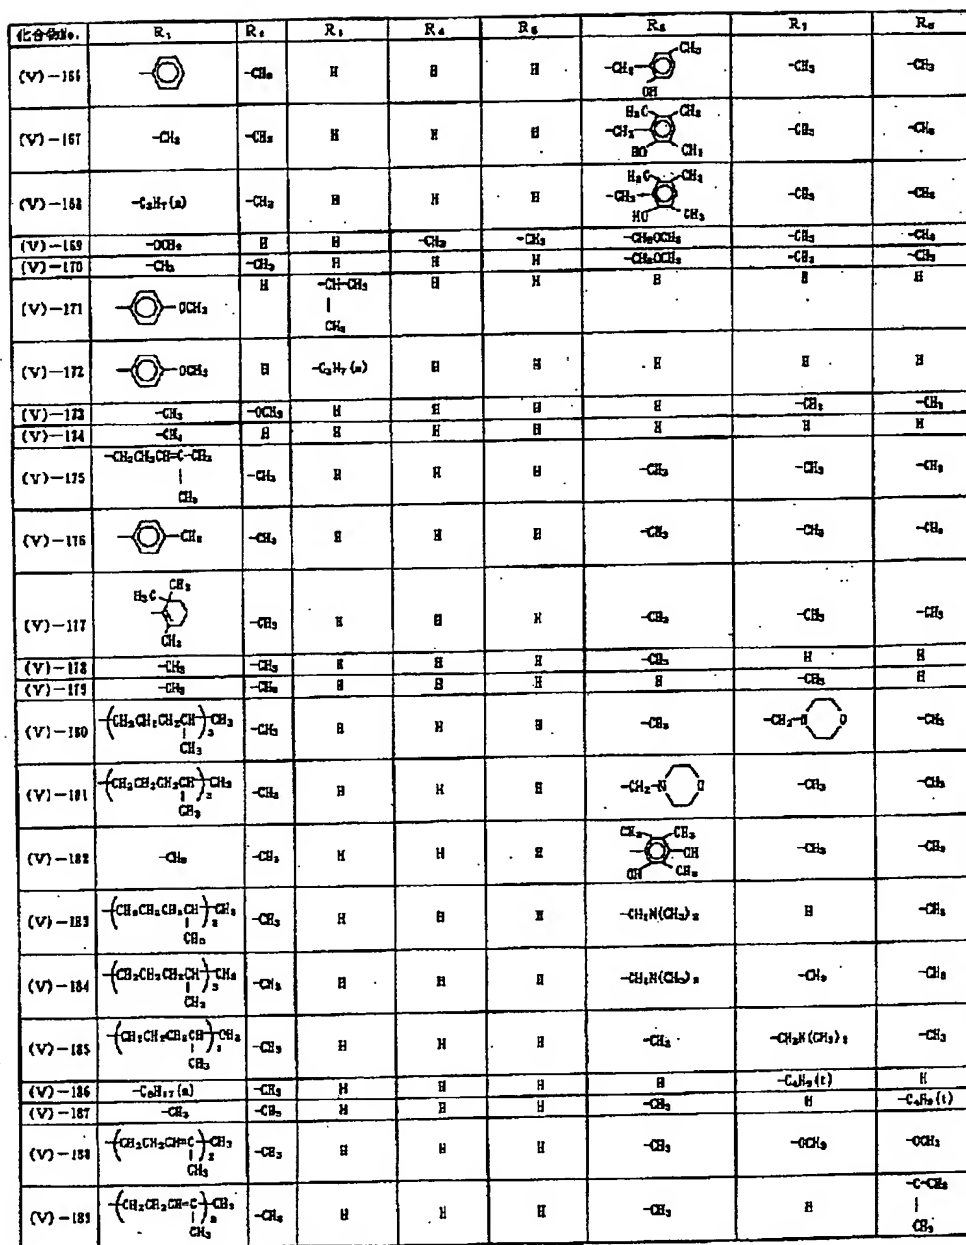 化合物No. R₁ R₂ R₃ R₄ R₅ R₆ R₇ R₈
(V)-166 -CH₃ H H H -CH₂ CH₃ OH -CH₃ -CH₃
(V)-167 -CH₃ -CH₃ H H H H₃C CH₃ -CH₂ HO CH₃ -CH₃ -CH₃
(V)-168 -C₃H₇(n) -CH₃ H H H H₃C CH₃ -CH₂ HO CH₃ -CH₃ -CH₃
(V)-169 -OCH₃ H H -CH₃ -CH₃ -CH₂OCH₃ -CH₃ -CH₃
(V)-170 -CH₃ -CH₃ H H H -CH₂OCH₃ -CH₃ -CH₃
(V)-171 -OCH₃ H -CH-CH₃ H H H H H
CH₃
(V)-172 -OCH₃ H -C₃H₇(n) H H H H H
(V)-173 -CH₃ -OCH₃ H H H H -CH₃ -CH₃
(V)-174 -CH₃ H H H H H H H
(V)-175 -CH₂CH₂CH=C-CH₃ -CH₃ H H H -CH₃ -CH₃ -CH₃
CH₃
(V)-176 -CH₃ -CH₃ H H H -CH₃ -CH₃ -CH₃
(V)-177 H₃C CH₃ CH₃ -CH₃ H H H -CH₃ -CH₃ -CH₃
(V)-178 -CH₃ -CH₃ H H H -CH₃ H H
(V)-179 -CH₃ -CH₃ H H H H -CH₃ H
(V)-180 -(CH₂CH₂CH₂CH)₃-CH₃ -CH₃ H H H -CH₃ -CH₂-N O -CH₃
CH₃
(V)-181 -(CH₂CH₂CH₂CH)-CH₃ -CH₃ H H H -CH₂-N O -CH₃ -CH₃
CH₃
(V)-182 -CH₃ -CH₃ H H H CH₃ CH₃ OH CH₃ -CH₃ -CH₃
(V)-183 -(CH₂CH₂CH₂CH)-CH₃ -CH₃ H H H -CH₂N(CH₃)₂ H -CH₃
CH₃
(V)-184 -(CH₂CH₂CH₂CH)₃-CH₃ -CH₃ H H H -CH₂N(CH₃)₂ -CH₃ -CH₃
CH₃
(V)-185 -(CH₂CH₂CH₂CH)-CH₃ -CH₃ H H H -CH₃ -CH₂N(CH₃)₂ -CH₃
CH₃
(V)-186 -C₈H₁₇(n) -CH₃ H H H H -C₄H₉(t) H
(V)-187 -CH₃ -CH₃ H H H -CH₃ H -C₄H₉(t)
(V)-188 -(CH₂CH₂CH=C)₂-CH₃ -CH₃ H H H -CH₃ -OCH₃ -OCH₃
CH₃
(V)-189 -(CH₂CH₂CH=C)-CH₃ -CH₃ H H H -CH₃ H -C-CH₃
CH₃ CH₃